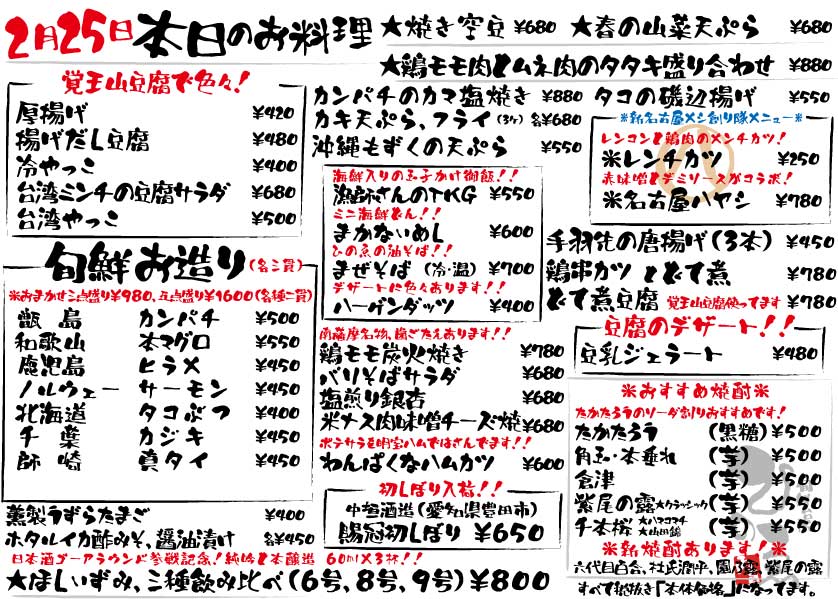 2月25日 本日のお料理
★焼き空豆 ¥680 ★春の山菜天ぷら ¥680
★鶏モモ肉とムネ肉のタタキ盛り合わせ ¥880
覚王山豆腐で色々!
厚揚げ ¥420
揚げだし豆腐 ¥480
冷やっこ ¥400
台湾ミンチの豆腐サラダ ¥680
台湾やっこ ¥500
旬鮮お造り(各二貫)
※おまかせ三点盛り¥980、五点盛り¥1600(各種二貫)
甑島 カンパチ ¥500
和歌山 本マグロ ¥550
鹿児島 ヒラメ ¥450
ノルウェー サーモン ¥450
北海道 タコぶつ ¥400
千葉 カジキ ¥450
師崎 真タイ ¥450
燻製うずらたまご ¥400
ホタルイカ酢みそ、醤油漬け 各¥450
日本酒ゴーアラウンド参戦記念!純吟と本醸造 60ml×3杯!!
★ほしいずみ、三種飲み比べ(6号、8号、9号)¥800
カンパチのカマ塩焼き ¥880
カキ天ぷら、フライ(3ケ) 各¥680
沖縄もずくの天ぷら ¥550
海鮮入りの玉子かけ御飯!!
漁師さんのTKG ¥550
ミニ海鮮どん!!
まかないめし ¥600
ひの魚の油そば!!
まぜそば(冷・温) ¥700
デザートに色々あります!!
ハーゲンダッツ ¥400
南薩摩名物、歯ごたえあります!!
鶏モモ炭火焼き ¥780
バリそばサラダ ¥680
塩煎り銀杏 ¥680
米ナス肉味噌チーズ焼 ¥680
ポテサラを明宝ハムではさんでます!!
わんぱくなハムカツ ¥600
初しぼり入荷!!
中垣酒造(愛知県豊田市)
賜冠初しぼり ¥650
タコの磯辺揚げ ¥550
※新名古屋メシ創り隊メニュー※
レンコンと鶏肉のメンチカツ!
※レンチカツ ¥250
赤味噌とデミソースがコラボ!
※名古屋ハヤシ ¥780
手羽先の唐揚げ(3本) ¥450
鶏串カツ とどて煮 ¥780
どて煮豆腐 覚王山豆腐使ってます ¥780
豆腐のデザート!!
豆乳ジェラート ¥480
※おすすめ焼酎※
たかたろうのソーダ割りおすすめです!
たかたろう (黒糖) ¥500
角玉・本垂れ (芋) ¥500
倉津 (芋) ¥500
紫尾の露★クラッシック (芋) ¥550
千本桜 ★ハマコマチ ★山田錦 (芋) ¥500
※新焼酎あります!※
六代目百合、杜氏潤平、園乃露、紫尾の露
すべて税抜き「本体価格」になってます。